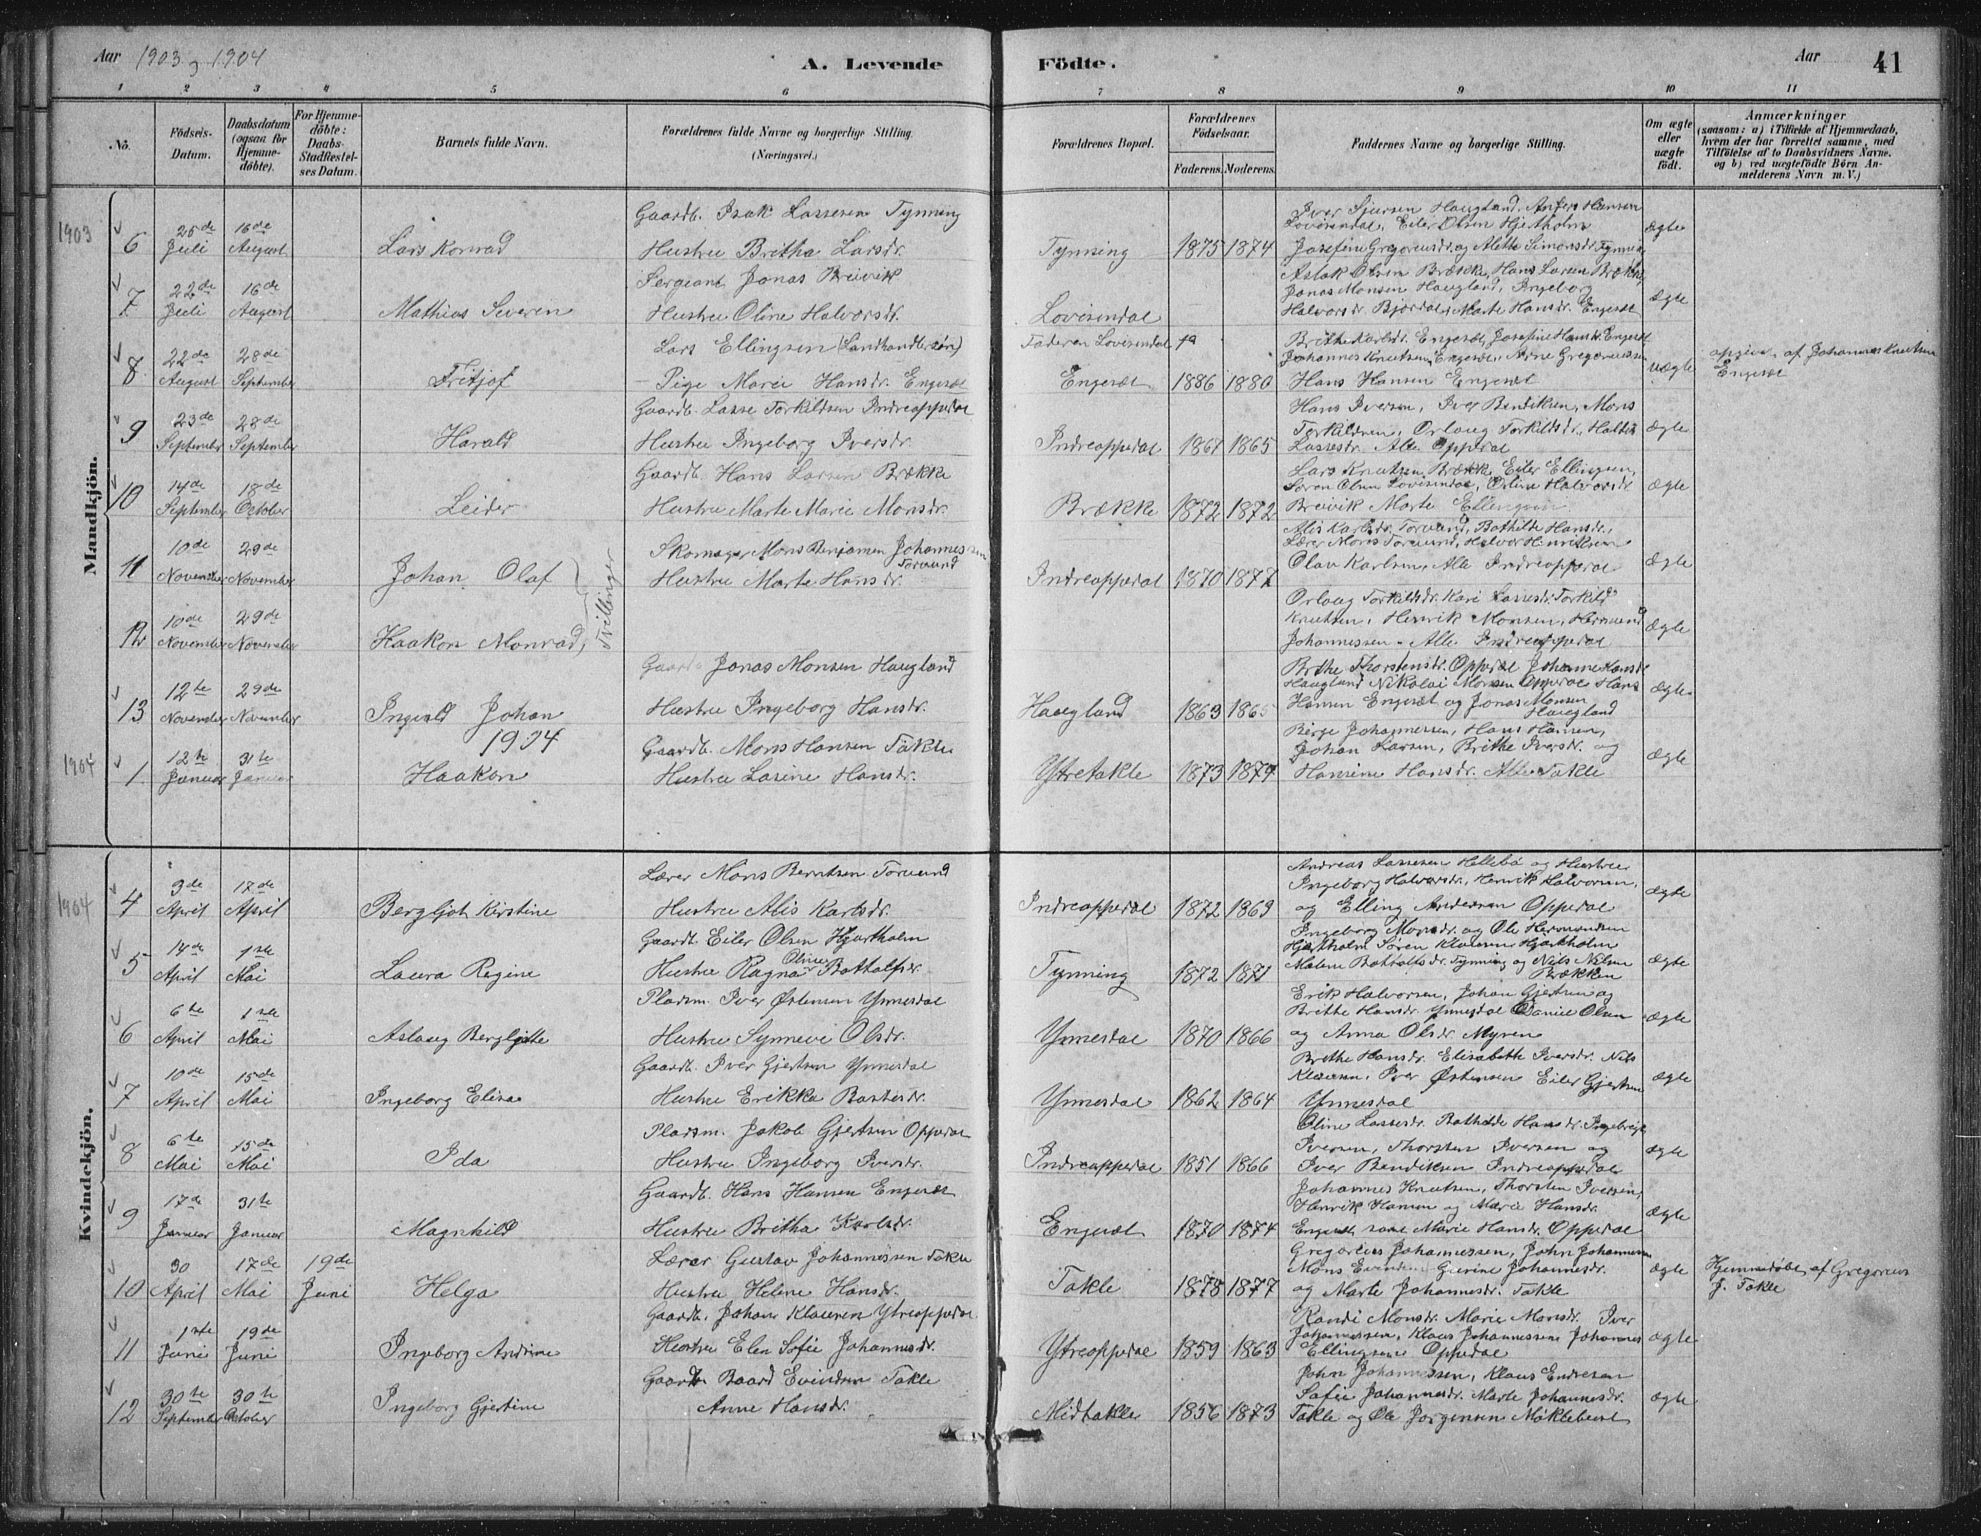 Aar 1903 og 1904
A. Levende Födte.
Aar 41
1 2 3 4 5 6 7 8 9 10 11
No.
Födsels-Datum.
Daabsdatum (ogsaa för Hjemmedöbte).
For Hjemmedöbte: Daabs-Stadfæstelses Datum.
Barnets fulde Navn.
Forældrenes fulde Navne og borgerlige Stilling. (Næringsvei.)
Forældrenes Bopæl.
Forældrenes Födselsaar.
Faderens. Moderens.
Faddernes Navne og borgerlige Stilling.
Om ægte eller uægte födt.
Anmærkninger
(saasom: a) i Tilfælde af Hjemmedaab, hvem der har forrettet samme, med Tilföielse af to Daabsvidners Navne, og b) ved uægtefödte Börn Anmelderens Navn m. V.)
Mandkjön.
1903
6 25de Juli 16de August Lars Konrad
Gaardb. Isak Lassesen Tynning
Hustru Britha Larsdr.
Tynning 1875 1874
Iver Sjursen Haugland, Anders Hansen
Lovisendal, Eiler Olsen Hjertholm
Josefine Gregoriusdr. og Alette Simonsdr. Tynning
ægte
7 22de Juli 16de August Mathias Severin
Sergeant Jonas Breivik
Hustru Oline Halvorsdr.
Lovisendal
Aslak Olsen Brække, Hans Larsen Brække
Jonas Monsen Haugland, Ingeborg
Halvorsdr. Bjordal, Marte Hansdr. Engesæt
ægte
8 22de August 28de September Fritjof
Lars Ellingsen (Landhandlersön)
Pige Marie Hansdr. Engesæt
Faderen Lovisendal
Engesæt 1886 1880
Brithe Karlsdr. Engesæt, Josefine Hansdr. Engesæt
Johannes Knutsen Engesæt, Arne Gregoriussen
Hans Hansen Engesæt
uægte
opgivet af Johannes Knutsen
Engesæt
9 23de September 28de September Harald
Gaardb. Lasse Torkildsen Indreoppedal
Hustru Ingeborg Iversdr.
Indreoppedal 1867 1865
Hans Iversen, Iver Bendiksen, Mons
Torkildsen, Orloug Torkildsdr.
Lassesdr. Alle Oppedal
ægte
10 14de September 18de October Leider
Gaardb. Hans Larsen Brække
Hustru Marte Marie Monsdr.
Brække 1872 1872
Lars Knutsen Brække, Eiler Ellingsen,
Sören Olsen Lovisendal, Oline Halvorsdr.
Breivik Marte Ellingsen
ægte
11 10de November 29de November Johan Olaf
Tvillinger
Skomager Mons Benjamin Johannessen
Torvund
Hustru Marte Hansdr.
Indreoppedal 1870 1877
Alis Karlsdr. Torvund, Bothilde Hansdr.,
Lærer Mons Torvund, Halvor Henriksen
Olav Karlsen, Alle Indreoppedal
ægte
12 10de November 29de November Haakon Monrad
Orloug Torkildsdr. Kari Lassesdr. Torkild
Knutsen, Henrik Monsen, Hermund
Johannessen. Alle Indreoppedal
ægte
13 12te November 29de November Ingvald Johan
Gaardb. Jonas Monsen Haugland
Hustru Ingeborg Hansdr.
Haugland 1863 1865
Brithe Thorstensdr. Oppedal Johanne Hansdr.
Haugland Nikolai Monsen Oppedal Hans
Hansen Engesæt og Jonas Monsen
Haugland
ægte
1904
1904
1 12te Januar 31te Januar Haakon
Gaardb. Mons Hansen Takle
Hustru Lasine Hansdr.
Ytretakle 1873 1879
Börge Johannessen, Hans Hansen,
Johan Larsen, Brithe Iversdr. og
Hansine Hansdr. Alle Takle
ægte
Kvindekjön.
1904
4 3de April 17de April Bergljot Kirstine
Lærer Mons Berntsen Torvund
Hustru Alis Karlsdr.
Indreoppedal 1872 1869
Andreas Lassesen Hellebö og Hustru
Ingeborg Halvorsdr., Henrik Halvorsen,
og Elling Andersen Oppedal
ægte
5 14de April 1ste Mai Laura Regine
Gaardb. Eiler Olsen Hjartholm
Oline
Hustru Ragna Botholfsdr.
Tynning 1872 1871
Ingeborg Monsdr. og Ole Hermundsen
Hjertholm Sören Klausen Hjartholm
Malene Botholfsdr. Tynning og Nils Nilsen
Brækken
ægte
6 6te April 1ste Mai Aslaug Bergljotte
Pladsm. Iver Östensen Ynnesdal
Hustru Synneve Olsdr.
Ynnesdal 1870 1866
Erik Halvorsen, Johan Gjertsen og
Brithe Hansdr. Ynnesdal Daniel Olsen
og Anna Olsdr. Myren
ægte
7 10de April 15de Mai Ingeborg Elisa
Gaardb. Iver Gjertsen Ynnesdal
Hustru Erikka
Ynnesdal 1862 1864
Brithe Hansdr. Elisabeth Iversdr. Nils
Klausen, Iver Östensen Eiler Gjertsen
Ynnesdal
ægte
8 6te Mai 15de Mai Ida
Pladsm. Jakob Gjertsen Oppedal
Hustru Ingeborg Iversdr.
Indreoppedal 1851 1866
Oline Lassesdr. Bothilde Hansdr. Ingebrigt
Iversen, Thorsten Iversen og
Iver Bendiksen Indreoppedal
ægte
9 17de Januar 31te Januar Magnhild
Gaardb. Hans Hansen Engesæt
Hustru Britha Karlsdr.
Engesæt 1870 1874
Johannes Knutsen, Thorsten Iversen,
Henrik Hansen og Marie Hansdr.
Engesæt samt Marie Hansdr. Oppedal
ægte
10 30 April 17de Mai 19de Juni Helga
Lærer Gustav Johannessen Takle
Hustru Helene Hansdr.
Takle 1878 1877
Gregorius Johannessen, John Johannessen
Mons Evindsen Gurine Johannesdr.
og Marte Johannesdr. Takle
ægte
Hjemmedöbt af Gregorius
J. Takle
11 1ste Juni 19de Juni Ingeborg Andrine
Gaardb. Johan Klausen Ytreoppedal
Hustru Elen Sofie Johannesdr.
Ytreoppedal 1859 1863
Randi Monsdr. Marie Monsdr. Iver
Johannessen, Klaus Johannessen Johannes
Ellingsen Oppedal
ægte
12 30te September 30te October Ingeborg Gjertine
Gaardb. Baard Evindsen Takle
Anne Hansdr.
Midtakle 1856 1873
John Johannessen, Klaus Endresen
Sofie Johannesdr. Marte Johannesdr.
Takle og Ole Jörgensen Möklebust
ægte